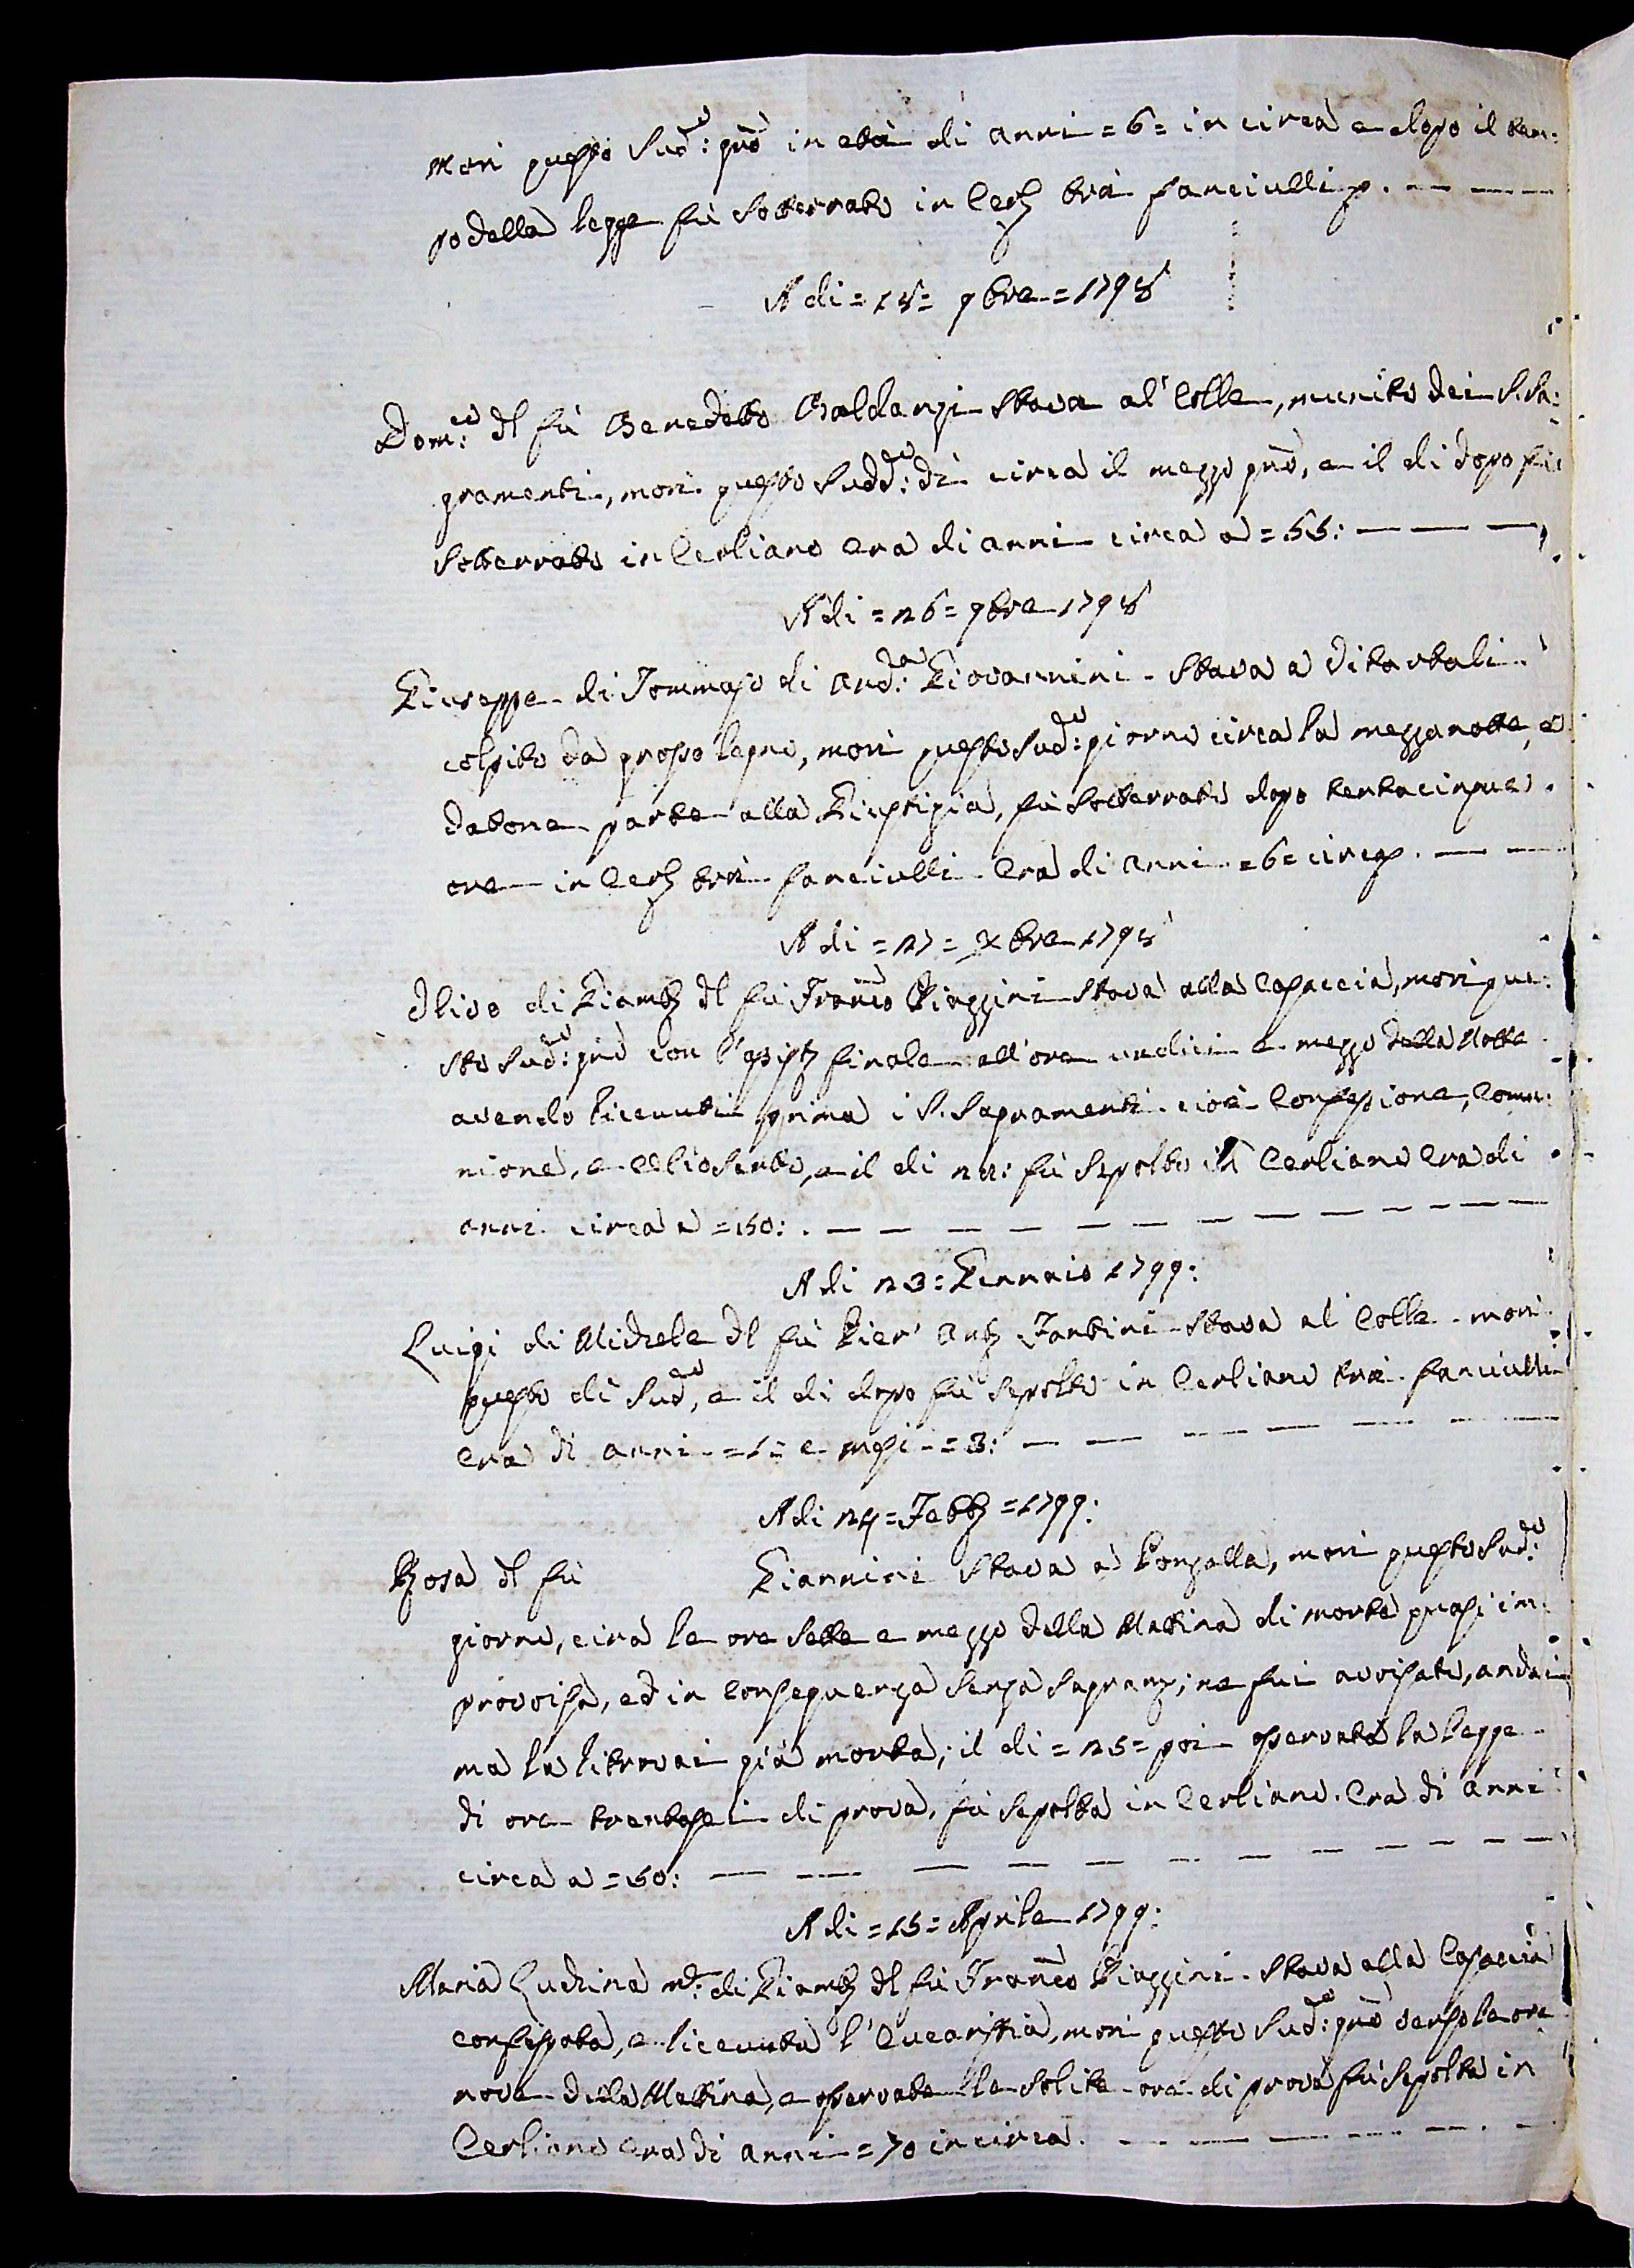 morì questo Sud:to gno in età di anni = 6 = in circa e dopo il tem:
po della legge fù Sotterrato in Cerl: trà fanciulli p.
A di = 18 = 9bre = 1798
Dom:co dl fù Benedetto Baldanzi Stava al' Colle, munito dei S. Sa:
gramenti, morì questo Sudd:to dì circa il mezzo gno, e il di dopo fù
Sotterrato in Cerliano era di anni circa a = 55:
A di = 26 = 9bre 1798
Giuseppe di Tommaso di And:ea Giovannini Stava a Vitartali
colpito da grosso legno, morì questo Sud:to giorno circa la mezzanotte, e
datone parte alla Giustizia, fù Sotterrato dopo trentacinque
ore in Cerl: trà fanciulli Era di anni = 6 = circa p.
A di = 27 = Xbre 1798
Olivo di Giamb: dl fù Franco Piazzini Stava alla Casaccia, morì que:
sto Sud:to gno con l'assist: finale all'ore undici e mezzo della Notte
avendo ricevuti prima i S. Sagramenti cioè Confessione, Comu:
nione, e Olio Santo, e il di 29: fù Sepolto in Cerliano Era di
anni circa a = 50:
A di 23: Gennaio 1799:
Luigi di Michele dl fù Pier' Ant: Tantini Stava al Colle morì
questo di Sud:to, e il di dopo fù Sepolto in Cerliano trà fanciulli
Era di anni = 1 = e mesi = 3:
A di 24 = Febb: = 1799:
Rosa dl fù Giannini Stava a Ronzalla, morì questo Sud:to
giorno, circa le ore Sette e mezzo della Mattina di morte quasi im:
provvisa, ed in conseguenza Senza Sagram:, ne fui avvisato, andai
ma la ritrovai già morta; il di = 25 = poi osservata la legge
di ore trentasei di prova, fù Sepolta in Cerliano. Era di anni
circa a = 50:
A di = 15 = Aprile 1799:
Maria Luchina m: di Giamb: dl fù Franco Piazzini Stava alla Casaccia
confessata, e ricevuta l'Eucaristia, morì questo Sud:to gno verso le ore
nove della Mattina, e osservate le Solite ore di prova fù Sepolta in
Cerliano Era di anni = 70 in circa.